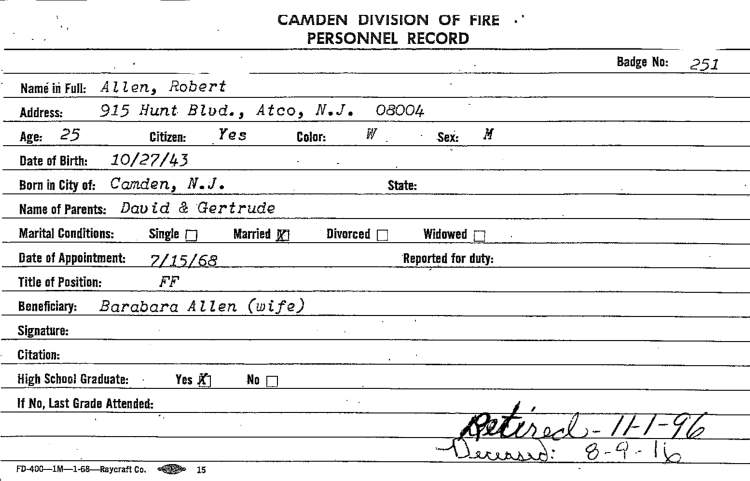 CAMDEN DIVISION OF FIRE
PERSONNEL RECORD
Badge No: 251
Name in Full: Allen, Robert
Address: 915 Hunt Blvd., Atco, N.J. 08004
Age: 25 Citizen: Yes Color: W Sex: M
Date of Birth: 10/27/43
Born in City of: Camden, N.J. State:
Name of Parents: David & Gertrude
Marital Conditions: Single ☐ Married ☒ Divorced ☐ Widowed ☐
Date of Appointment: 7/15/68 Reported for duty:
Title of Position: FF
Beneficiary: Barabara Allen (wife)
Signature:
Citation:
High School Graduate: Yes ☒ No ☐
If No, Last Grade Attended:
Retired - 11-1-96
Deceased: 8-9-16
FD-400—1M—1-68—Raycraft Co. 15